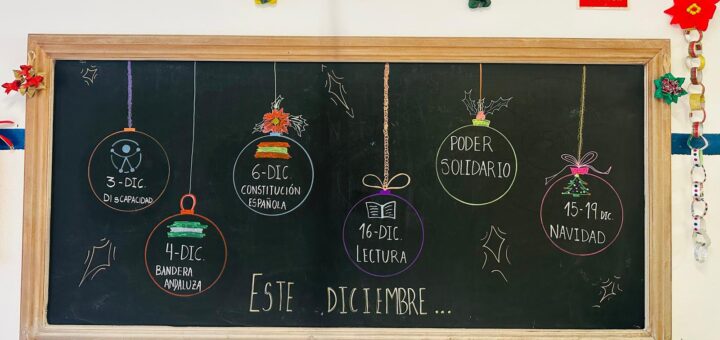 3-DIC.
DIsCAPACIDAD
4-DIC.
BANDERA
ANDALUZA
6-DIC.
CONSTITUCIÓN
ESPAÑOLA
16-DIC.
LECTURA
PODER
SOLIDARIO
15-19 DIC.
NAVIDAD
ESTE DICIEMBRE...